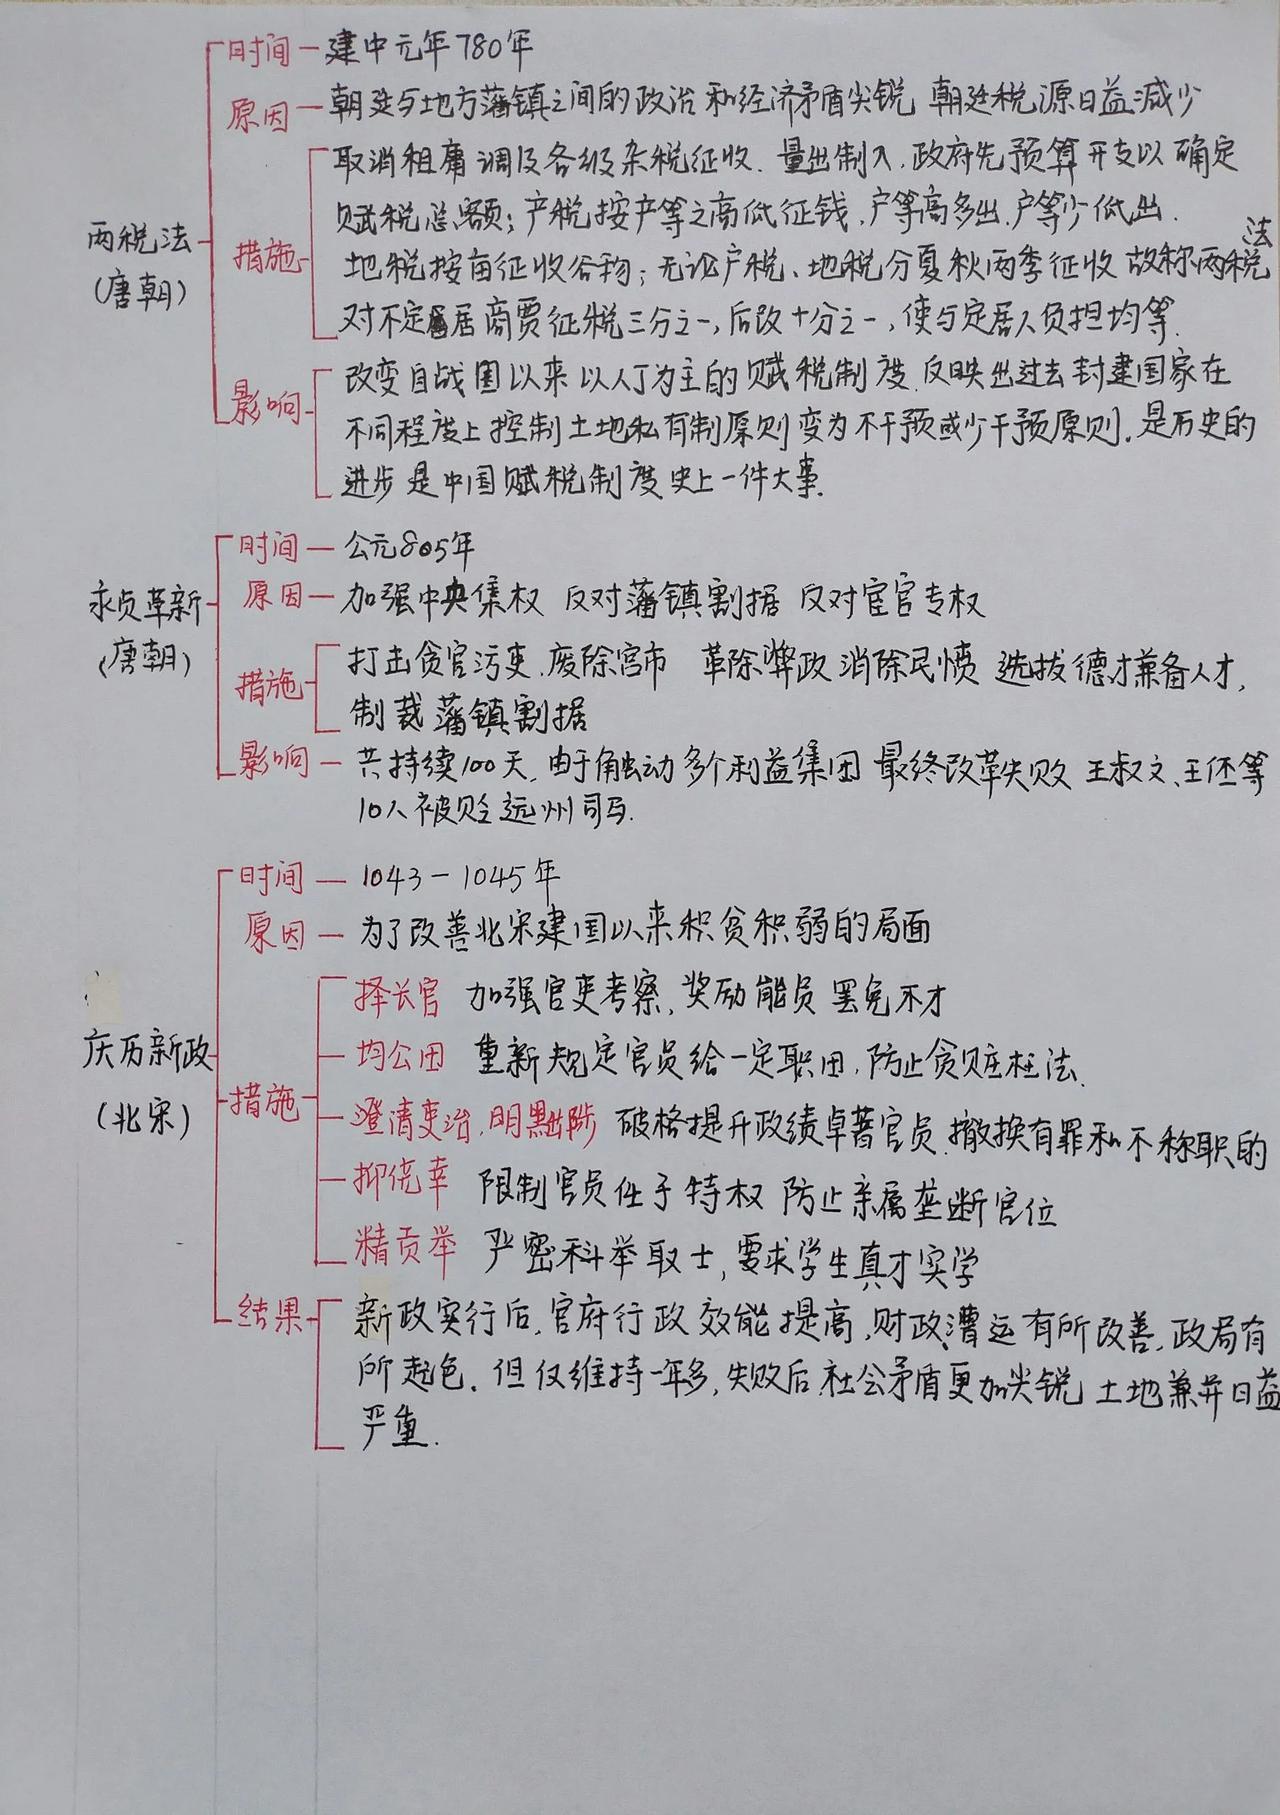 时间 — 建中元年780年
原因 — 朝廷与地方藩镇之间的政治和经济矛盾尖锐 朝廷税源日益减少
取消租庸调及各级杂税征收. 量出制入, 政府先预算开支以确定
赋税总额; 产税按产等之高低征钱, 户等高多出, 户等少低出.
两税法
(唐朝)
措施
地税按亩征收谷物; 无论户税、地税分夏秋两季征收 故称两税法
对不定居商贾征税三分之一, 后改十分之一, 使与定居人负担均等.
影响
改变自战国以来以人丁为主的赋税制度, 反映出过去封建国家在
不同程度上控制土地私有制原则变为不干预或少干预原则, 是历史的
进步是中国赋税制度史上一件大事.
时间 — 公元805年
永贞革新
(唐朝)
原因 — 加强中央集权 反对藩镇割据 反对宦官专权
措施
打击贪官污吏, 废除宫市 革除弊政 消除民愤 选拔德才兼备人才,
制裁藩镇割据
影响 — 共持续100天, 由于触动多个利益集团 最终改革失败 王叔文、王伾等
10人被贬远州司马.
时间 — 1043-1045年
原因 — 为了改善北宋建国以来积贫积弱的局面
庆历新政
(北宋)
措施
择长官 加强官吏考察, 奖励能员 罢免不才
均公田 重新规定官员给一定职田, 防止贪赃枉法.
澄清吏治, 明黜陟 破格提升政绩卓著官员, 撤换有罪和不称职的
抑侥幸 限制官员任子特权 防止亲属垄断官位
精贡举 严密科举取士, 要求学生真才实学
结果
新政实行后, 官府行政效能提高, 财政、漕运有所改善, 政局有
所起色. 但仅维持一年多, 失败后, 社会矛盾更加尖锐 土地兼并日益
严重.